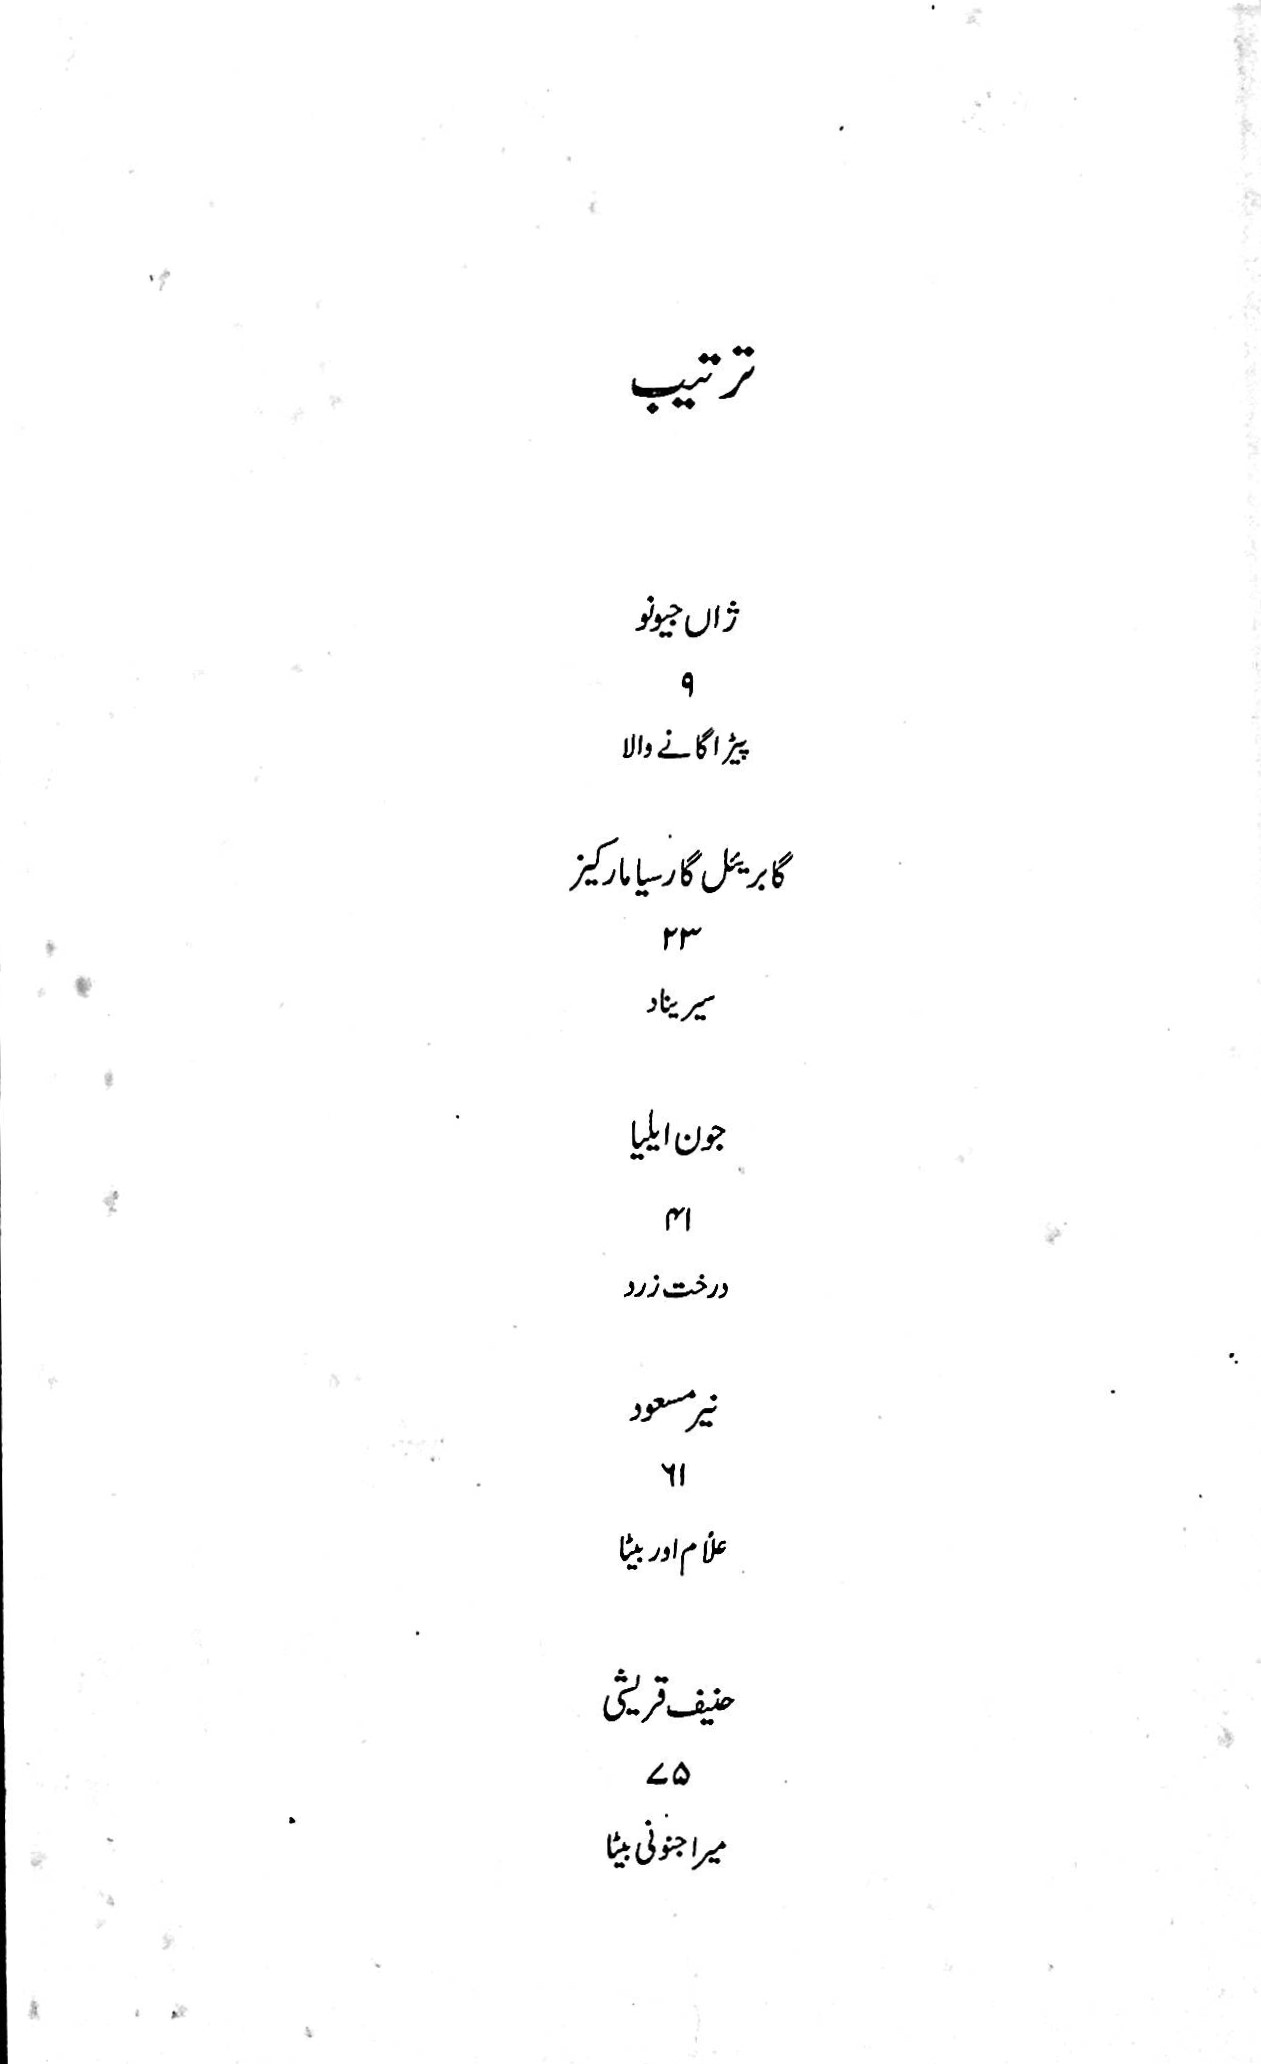 ترتیب
ژاں جیونو
۹
پیڑ اگانے والا
گابریئل گارسیا مارکیز
۲۳
سیریناد
جون ایلیا
۴۱
درخت زرد
نیر مسعود
۶۱
علاّم اور بیٹا
حنیف قریشی
۷۵
میرا جنونی بیٹا